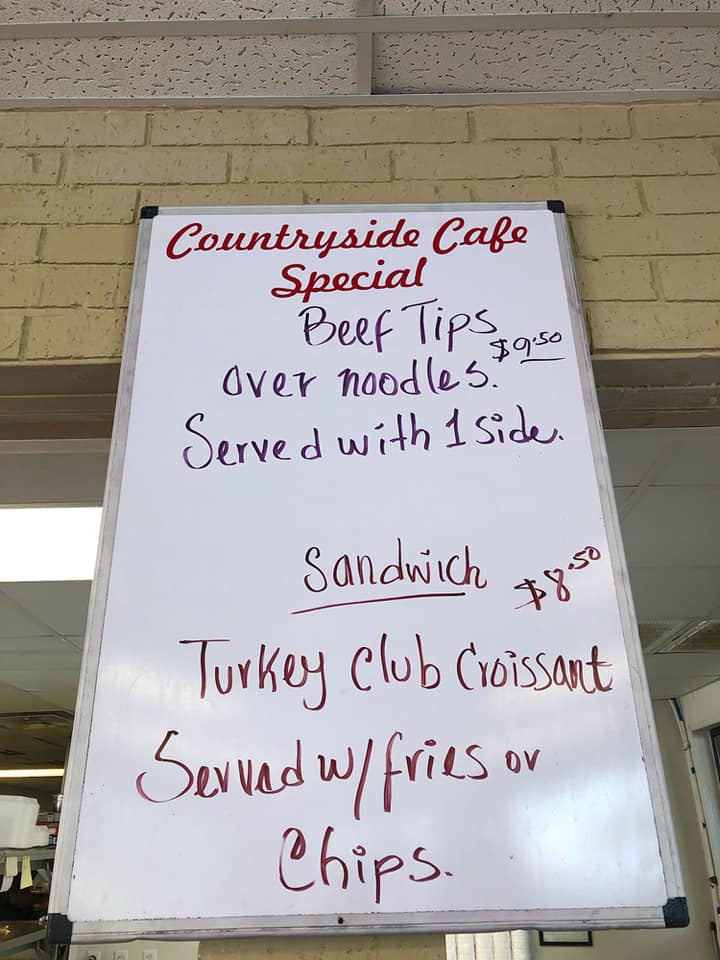 Countryside Cafe
Special
Beef Tips
$9.50
over noodles.
Served with 1 side.
Sandwich
$8.50
Turkey Club Croissant
Served w/fries or
Chips.